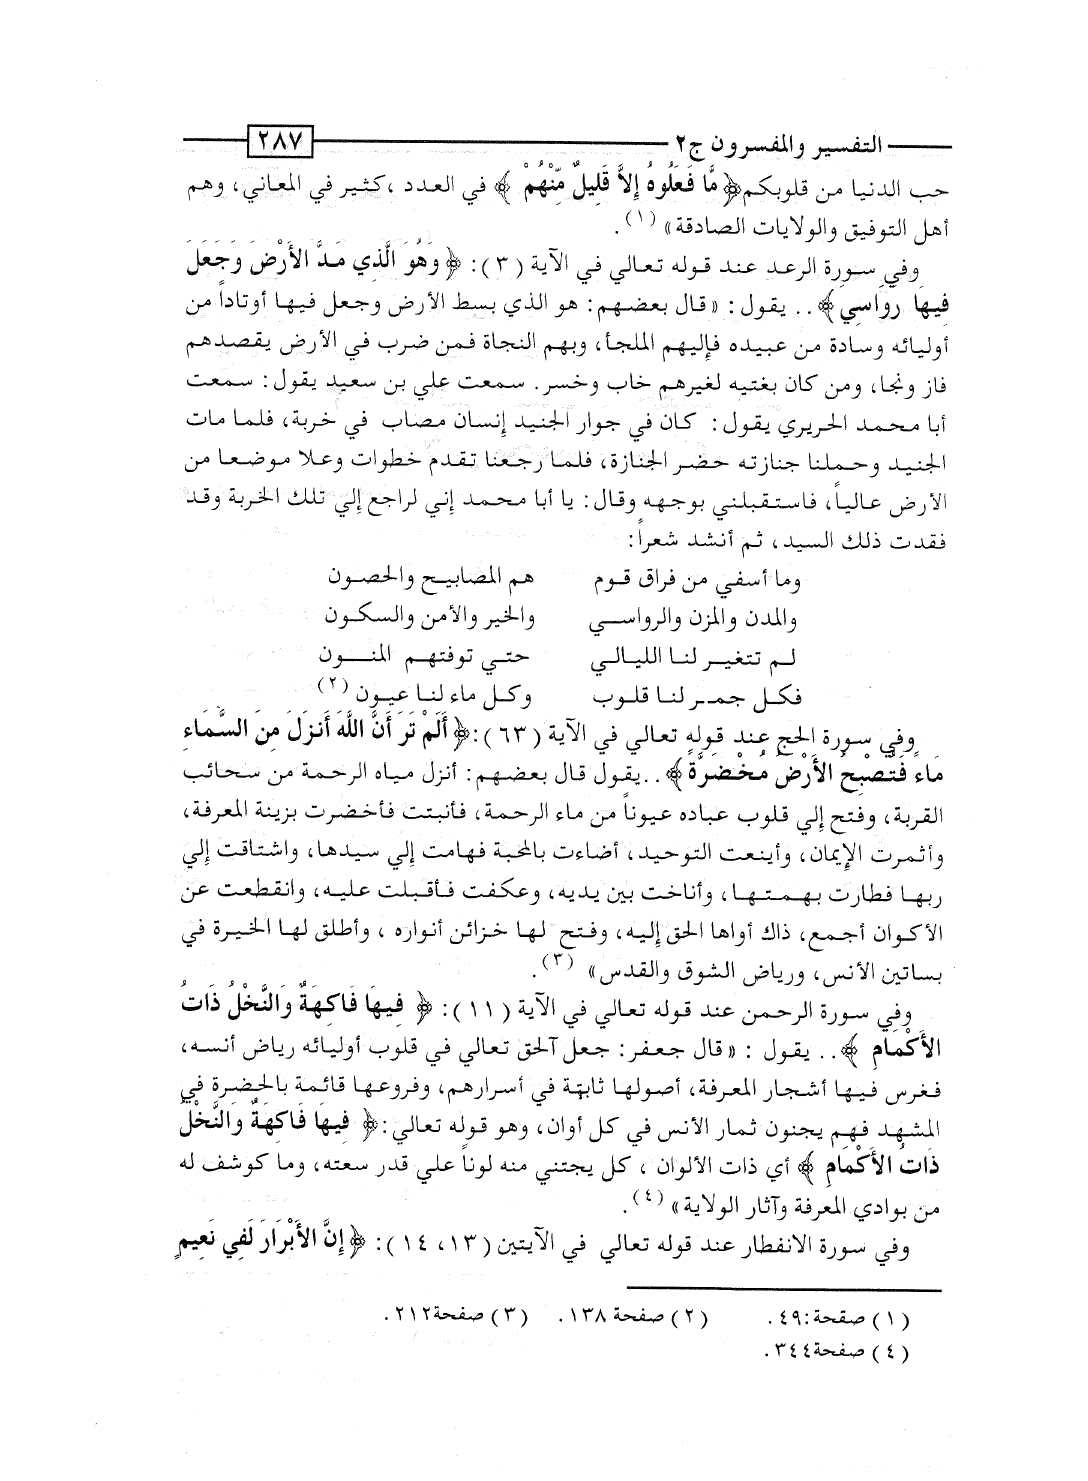 التفسير والمفسرون ج٢ ٢٨٧
حب الدنيا من قلوبكم﴿ مَّا فَعَلُوهُ إِلاَّ قَلِيلٌ مِّنْهُمْ ﴾ في العدد ،كثير في المعاني، وهم
أهل التوفيق والولايات الصادقة» (١) .
وفي سورة الرعد عند قوله تعالي في الآية (٣): ﴿ وَهُوَ الَّذِي مَدَّ الأَرْضَ وَجَعَلَ
فِيهَا رَوَاسِيَ﴾.. يقول: «قال بعضهم: هو الذي بسط الأرض وجعل فيها أوتاداً من
أوليائه وسادة من عبيده فإليهم الملجأ، وبهم النجاة فمن ضرب في الأرض يقصدهم
فاز ونجا، ومن كان بغتيه لغيرهم خاب وخسر. سمعت علي بن سعيد يقول: سمعت
أبا محمد الحريري يقول: كان في جوار الجنيد إنسان مصاب في خربة، فلما مات
الجنيد وحملنا جنازته حضر الجنازة، فلما رجعنا تقدم خطوات وعلا موضعا من
الأرض عالياً، فاستقبلني بوجهه وقال: يا أبا محمد إني لراجع إلي تلك الخربة وقد
فقدت ذلك السيد، ثم أنشد شعراً:
وما أسفي من فراق قوم هم المصابيح والحصون
والمدن والمزن والرواسي والخير والأمن والسكون
لم تتغير لنا الليالي حتي توفتهم المنون
فكل جمر لنا قلوب وكل ماء لنا عيون (٢)
وفي سورة الحج عند قوله تعالي في الآية (٦٣):﴿ أَلَمْ تَرَ أَنَّ اللَّهَ أَنزَلَ مِنَ السَّمَاءِ
مَاءً فَتُصْبِحُ الأَرْضُ مُخْضَرَّةً ﴾..يقول قال بعضهم: أنزل مياه الرحمة من سحائب
القربة، وفتح إلي قلوب عباده عيوناً من ماء الرحمة، فأنبتت فأخضرت بزينة المعرفة،
وأثمرت الإيمان، وأينعت التوحيد، أضاءت بالمحبة فهامت إلي سيدها، واشتاقت إلي
ربها فطارت بهمتها، وأناخت بين يديه، وعكفت فأقبلت عليه، وانقطعت عن
الأكوان أجمع، ذاك أواها الحق إليه، وفتح لها خزائن أنواره ، وأطلق لها الخيرة في
بساتين الأنس، ورياض الشوق والقدس» (٣).
وفي سورة الرحمن عند قوله تعالي في الآية (١١): ﴿ فِيهَا فَاكِهَةٌ وَالنَّخْلُ ذَاتُ
الأَكْمَامِ ﴾.. يقول : «قال جعفر: جعل الحق تعالي في قلوب أوليائه رياض أنسه،
فغرس فيها أشجار المعرفة، أصولها ثابتة في أسرارهم، وفروعها قائمة بالحضرة في
المشهد فهم يجنون ثمار الأنس في كل أوان، وهو قوله تعالي:﴿ فِيهَا فَاكِهَةٌ وَالنَّخْلُ
ذَاتُ الأَكْمَامِ ﴾ أي ذات الألوان ، كل يجتني منه لوناً علي قدر سعته، وما كوشف له
من بوادي المعرفة وآثار الولاية» (٤).
وفي سورة الانفطار عند قوله تعالي في الآيتين (١٣، ١٤): ﴿ إِنَّ الأَبْرَارَ لَفِي نَعِيمٍ
(١) صفحة:٤٩. (٢) صفحة ١٣٨. (٣) صفحة٢١٢.
(٤) صفحة٣٤٤.